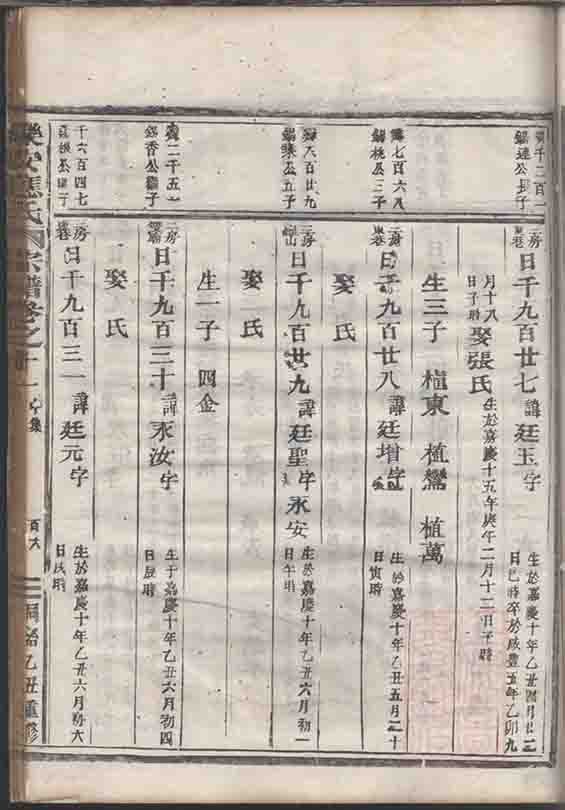 千三百一
錫蓮公長子
三房
東巷
日千九百廿七
諱廷玉字
生於嘉慶十年乙丑四月廿二
日巳時卒於咸豐五年乙卯九
月十八
日子時
娶張氏
生於嘉慶十五年庚午二月十二日子時
生三子 植東 植鸞 植萬
七百六八
錫桃公三子
三房
東巷
日千九百廿八
諱廷增字
生於嘉慶十年乙丑五月三十
日寅時
娶氏
六百廿九
公五子
三房
日千九百廿九
諱廷聖字永安
生於嘉慶十年乙丑六月初一
日午時
娶氏
生一子 四金
二千五
香公繼子
二房
日千九百三十
諱永汝字
生于嘉慶十年乙丑六月初四
日辰時
娶氏
千六百四七
公子
三房
巷
日千九百三一
諱廷元字
生於嘉慶十年乙丑六月初六
日辰時
樂安應氏宗譜卷之十一
集
百六
同治乙丑重修